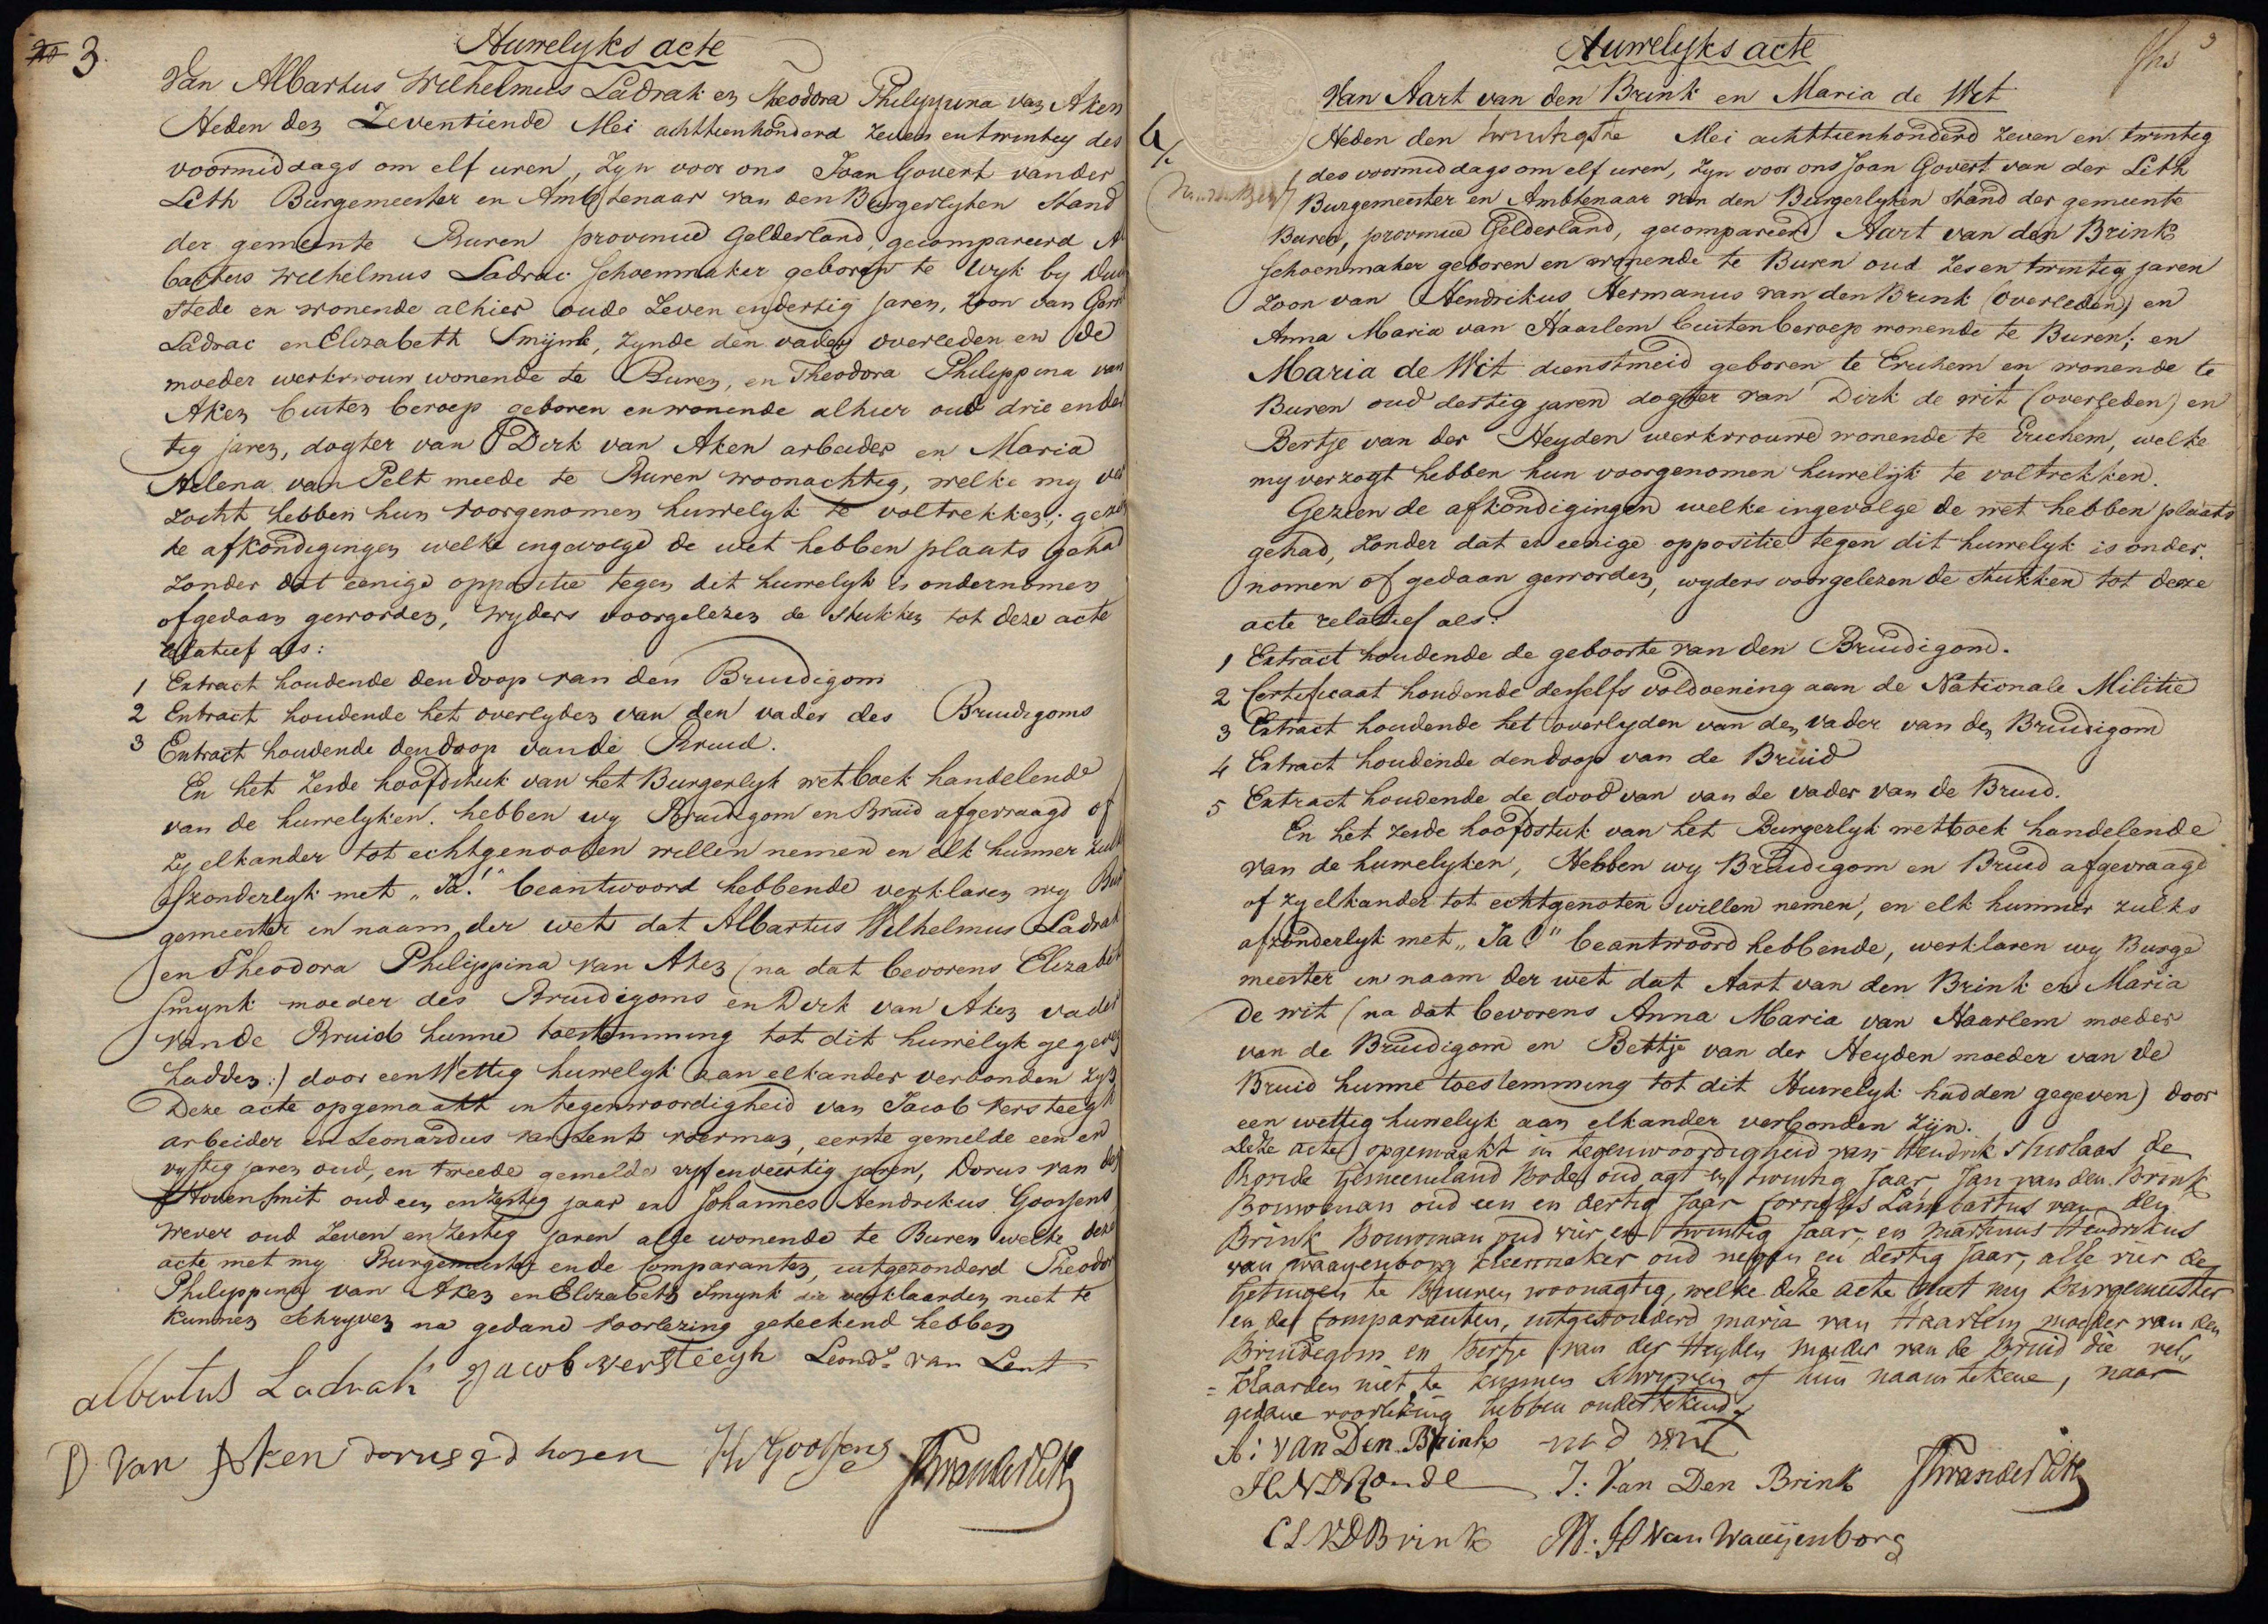 3.
Huwelyks acte
Van Albartus Wilhelmus Ladrak en Theodora Philippina van Aken
Heden den Zeventiende Mei achttienhonderd zeven en twintig des
voormiddags om elf uren, zyn voor ons Joan Govert vander
Leth Burgemeester en Ambtenaar van den Burgerlyken Stand
der gemeente Buren provincie Gelderland, gecompareerd Al
bartus Wilhelmus Ladrac Schoenmaker geboren te Wyk by Duur
stede en wonende alhier oude Zeven en dertig jaren, zoon van
Ladrac en Elizabeth Smijnk, zynde den vader overleden en de
moeder werkvrouw wonende te Buren, en Theodora Philippina van
Aken buiten beroep geboren en wonende alhier oud drie en der
tig jaren, dogter van Dirk van Aken arbeider en Maria
Helena van Pelt meede te Buren woonachtig, welke my ver
zocht hebben hun voorgenomen huwelyk te voltrekken; gezien
de afkondigingen welke ingevolge de wet hebben plaats gehad
zonder dat eenige oppositie tegen dit huwelyk is ondernomen
of gedaan geworden, wyders voorgelezen de stukken tot deze acte
relatief als:
1 Extract houdende den doop van den Bruidigom
2 Extract houdende het overlyden van den vader des Bruidigoms
3 Extract houdende den doop van de Bruid.
En het zesde hoofdstuk van het Burgerlyk wetboek handelende
van de huwelyken. hebben wy Bruidigom en Bruid afgevraagd of
zy elkander tot echtgenooten willen nemen en elk hunner zulks
afzonderlyk met „Ja!" beantwoord hebbende verklaren wy Bur
gemeester in naam der wet dat Albartus Wilhelmus Ladrak
en Theodora Philippina van Aken (na dat bevorens Elizabeth
Smynk moeder des Bruidigoms en Dirk van Aken vader
van de Bruid hunne toestemming tot dit huwelyk gegeven
hadden:) door een Wettig huwelyk aan elkander verbonden zyn
Deze acte opgemaakt in tegenwoordigheid van Jacob Versteegh
arbeider en Leonardus van Lent voerman, eerste gemelde een en
vyftig jaren oud, en tweede gemelde vyf en veertig jaren, Dorus van den
Hoven Smit oud een en zestig jaar en Johannes Hendrikus Goossens
Wever oud Zeven en zestig jaren alle wonende te Buren welke deze
acte met my Burgemeester en de Comparanten, uitgezonderd Theodora
Philippina van Aken en Elizabeth Smynk die verklaarden niet te
kunnen Schryven na gedane voorlezing geteekend hebben
albertus Ladrak Jacob versteegh Leond.s van Lent
D van Aken dorus v d hoven JH Goossens JGvanderLeth
3
Huwelyks acte
Van Aart van den Brink en Maria de Wit
4
Heden den twintigste Mei achttienhonderd zeven en twintig
des voormiddags om elf uren, zyn voor ons Joan Govert van der Leth
Burgemeester en Ambtenaar van den Burgerlyken Stand der gemeente
Buren, provincie Gelderland, gecompareerd Aart van den Brink
Schoenmaker geboren en wonende te Buren oud zes en twintig jaren
zoon van Hendrikus Hermanus van den Brink (overleden) en
Anna Maria van Haarlem buiten beroep wonende te Buren; en
Maria de Wit dienstmeid geboren te Erichem en wonende te
Buren oud dertig jaren dogter van Dirk de wit (overleden) en
Bertje van der Heyden werkvrouwe wonende te Erichem, welke
my verzogt hebben hun voorgenomen huwelijk te voltrekken.
Gezien de afkondigingen welke ingevolge de wet hebben plaats
gehad, zonder dat er eenige oppositie tegen dit huwelyk is onder
nomen of gedaan geworden, wyders voorgelezen de stukken tot deze
acte relatief als:
1 Extract houdende de geboorte van den Bruidigom.
2 Certificaat houdende deszelfs voldoening aan de Nationale Militie
3 Extract houdende het overlyden van den vader van den Bruidigom
4 Extract houdende den doop van de Bruid
5 Extract houdende de dood van van de vader van de Bruid.
En het zesde hoofdstuk van het Burgerlyk wetboek handelende
van de huwelyken, Hebben wy Bruidigom en Bruid afgevraagd
of zy elkander tot echtgenoten willen nemen, en elk hunner zulks
afzonderlyk met „Ja!" beantwoord hebbende, verklaren wy Burge
meester in naam der wet dat Aart van den Brink en Maria
de wit (na dat bevorens Anna Maria van Haarlem moeder
van de Bruidigom en Bertje van der Heyden moeder van de
Bruid hunne toestemming tot dit Huwelyk hadden gegeven) door
een wettig huwelyk aan elkander verbonden zijn.
Deze acte opgemaakt in tegenwoordigheid van Hendrik Nicolaas de
Ronde Gemeeneland Bode oud agt en twintig Jaar, Jan van den Brink
Bouwman oud een en dertig Jaar Cornelis Lambartus van den
Brink Bouwman oud vier en twintig Jaar, en Martinus Hendrikus
van Waayenborg Kleermaker oud negen en dertig Jaar, alle vier de
Getuigen te Buuren woonagtig, welke deze acte met my Burgemeester
en de Comparanten, uitgezonderd maria van Haarlem moeder van den
Bruidegom en Bertje van der Heyden moeder van de Bruid die ver
= klaarden niet te kunnen Schryven of hun naam tekene, naar
gedane voorlezing hebben ondertekend
A: van Den Brink
HNDRonde J: Van Den Brink JGvanderLeth
CLVDBrink M: H van Waaijenborg